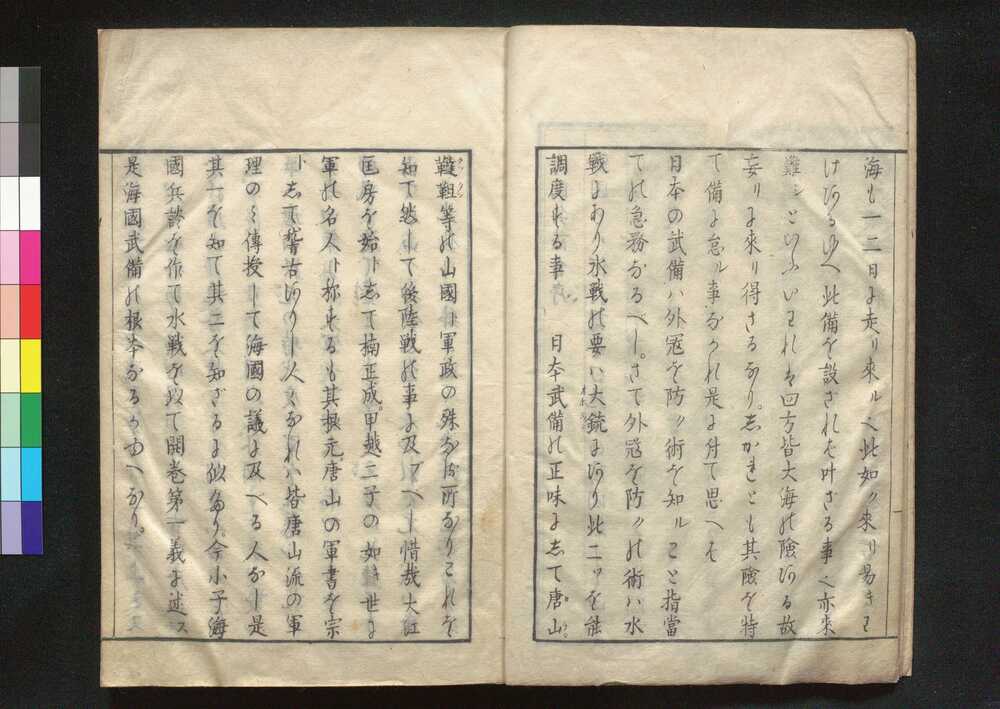 海も一二日に走リ來ル也此如ク來リ易キわ
け有るゆへ此備を設されは叶さる事也亦來
難シといふいわれは四方皆大海の險有る故
妄りに來リ得さるなり。しかれとも其險を恃
て備に怠ル事なかれ是に付て思へは
日本の武備ハ外冦を防ク術を知ルこと指當
ての急務なるべし。さて外冦を防クの術ハ水
戰にあり水戰の要ハ大銃にあり此二ツを能
調度する事 日本武備の正味にして唐山
韃靼等の山國と軍政の殊なる所なりこれを
知て然して後陸戰の事に及ブべし惜哉大江
匡房を始トして楠正成。甲越二子の如き世に
軍の名人ト称するも其根元唐山の軍書を宗
トして稽古ありし人々なれハ皆唐山流の軍
理のミ傳授して海國の議に及へる人なし是
其一を知て其二を知ざるに似たり。今小子海
國兵談を作て水戰を以て開巻第一義に述ス
是海國武備の根本なるか故へなり。